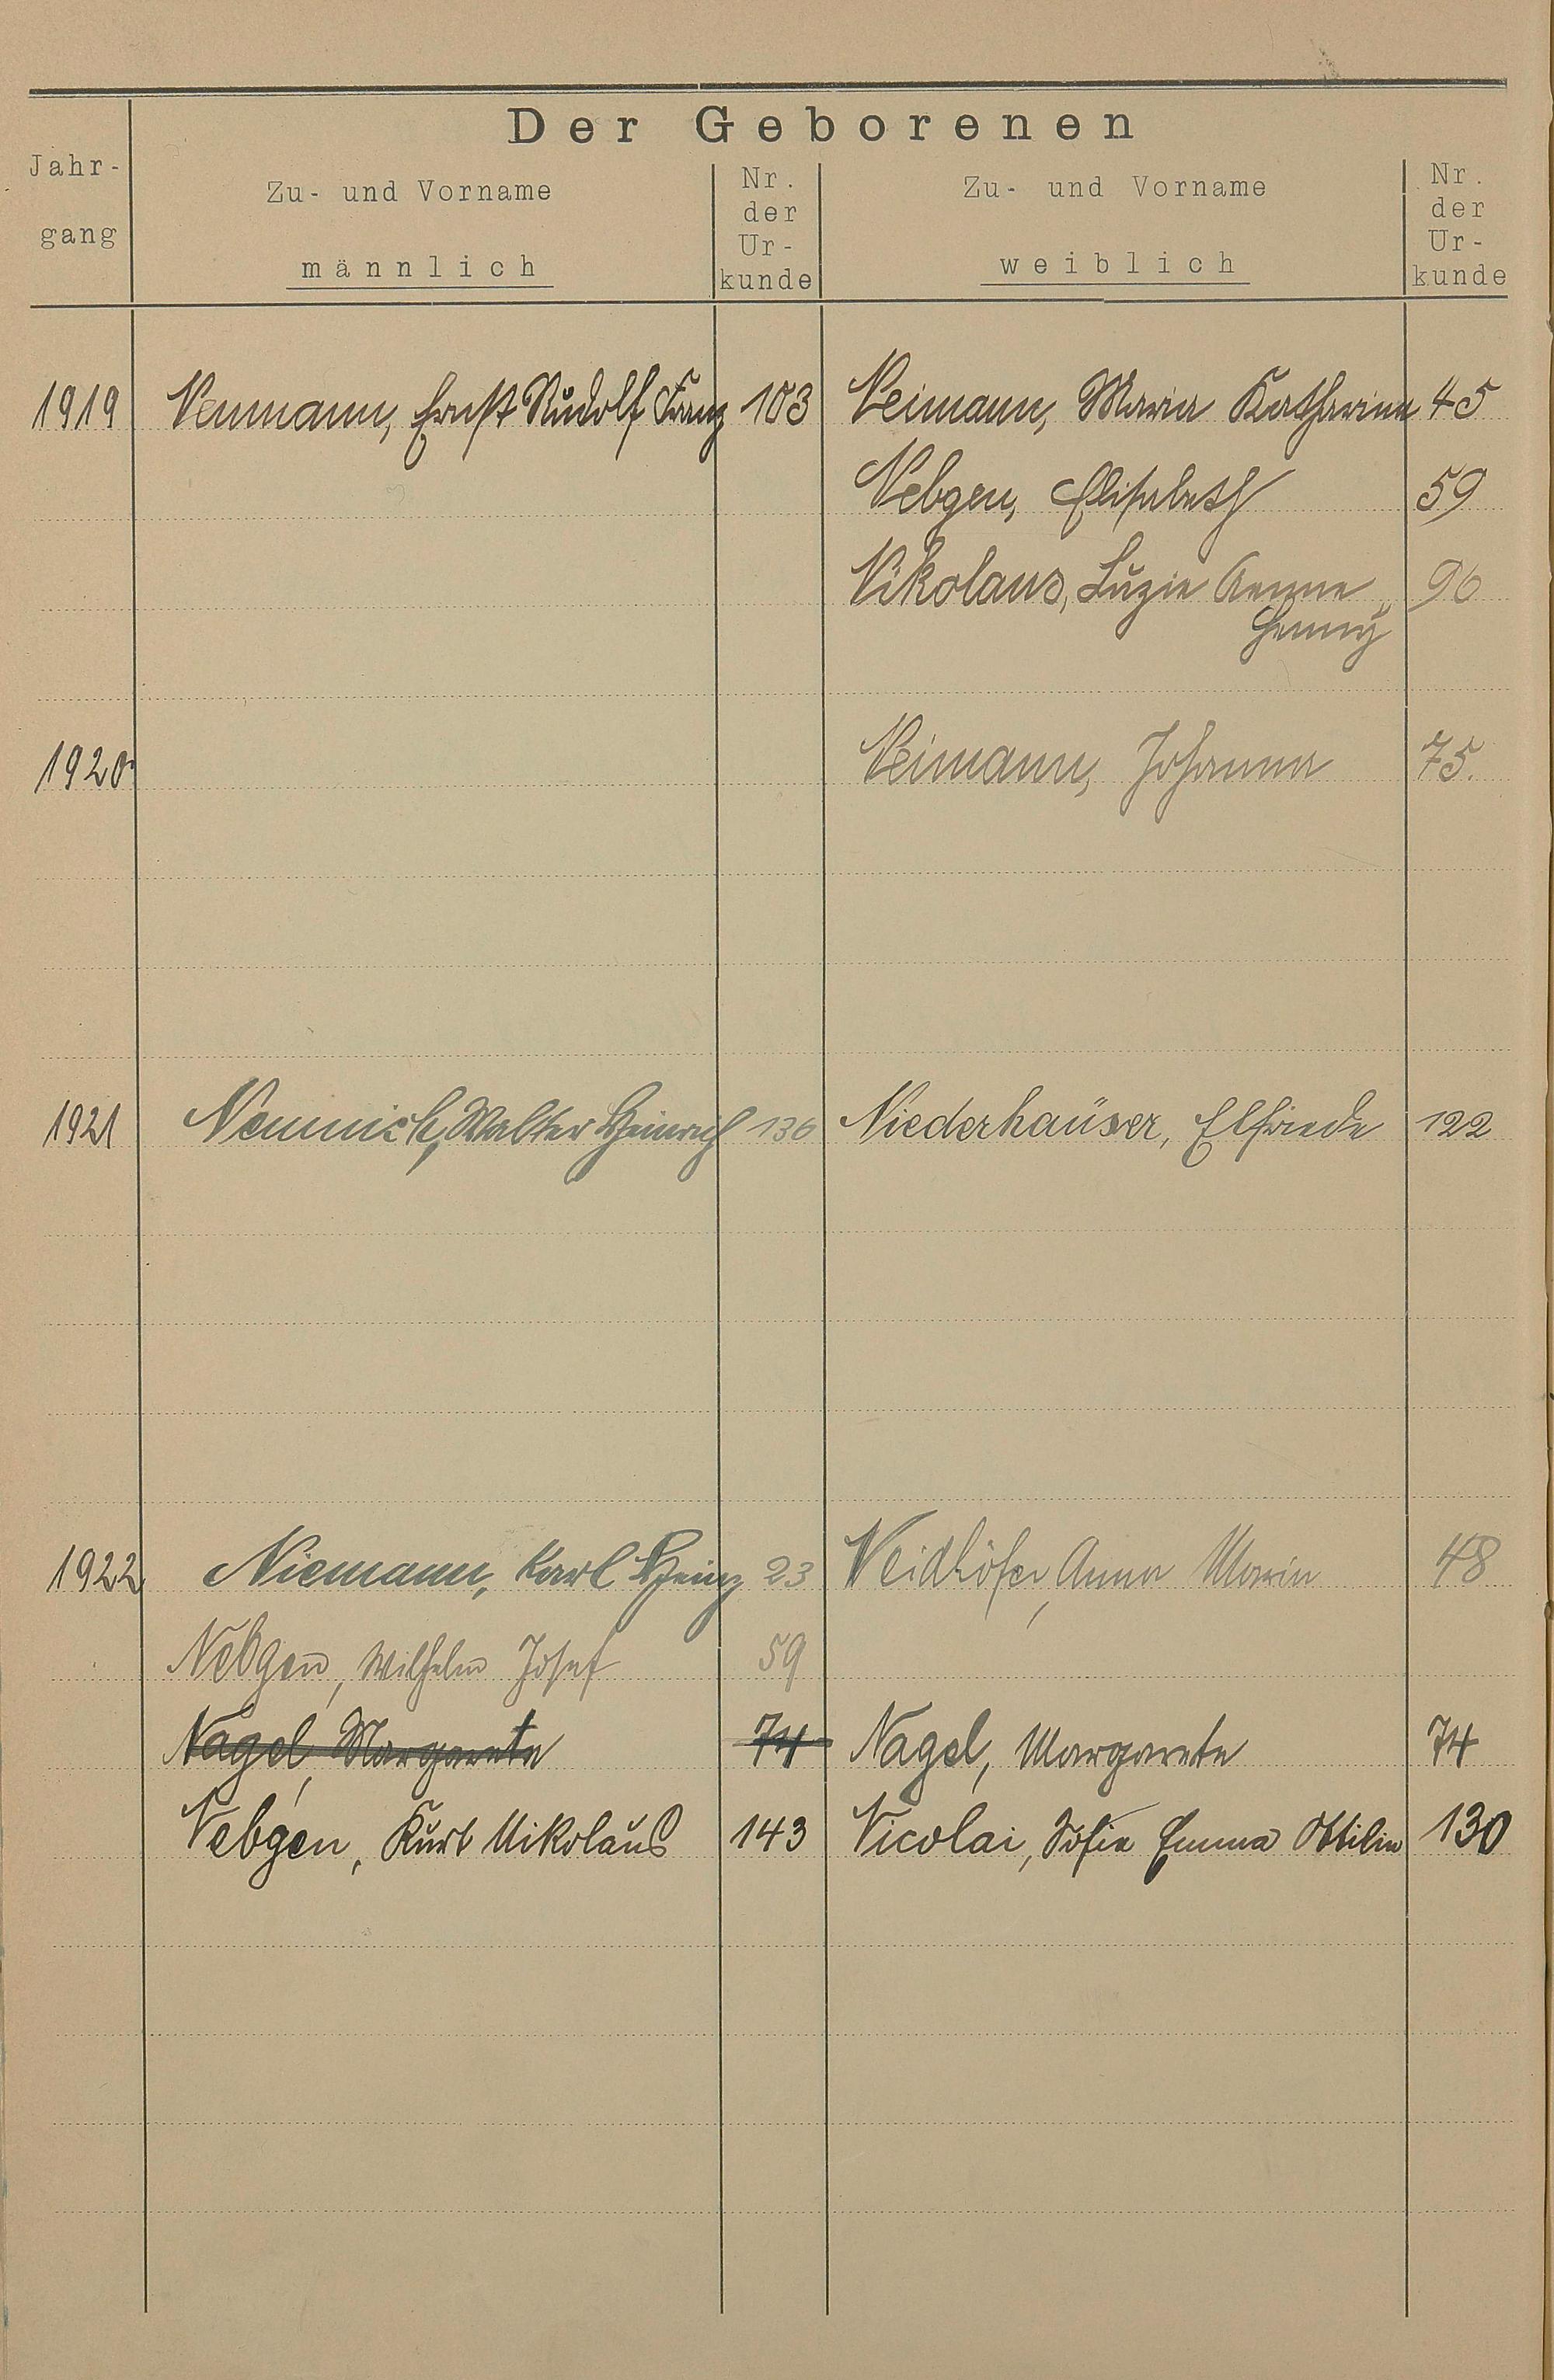 Der Geborenen
Jahr-
gang
Zu- und Vorname
männlich
Nr.
der
Ur-
kunde
Zu- und Vorname
weiblich
Nr.
der
Ur-
kunde
1919 Neumann, Ernst Rudolf Franz 103 Neimann, Maria Katharina 45
Nebgen, Elisabeth 59
Nikolaus, Luzie Aenne 96
Henny
1920 Neimann, Johanna 75.
1921 Nemnich, Walter Heinrich 136 Niederhäuser, Elfriede 122
1922 Niemann, Karl Heinz 23 Neidhöfer, Anna Maria 48
Nebgen, Wilhelm Josef 59
Nagel, Margarete 74 Nagel, Margarete 74
Nebgen, Kurt Nikolaus 143 Nicolai, Sofie Emma Ottilie 130